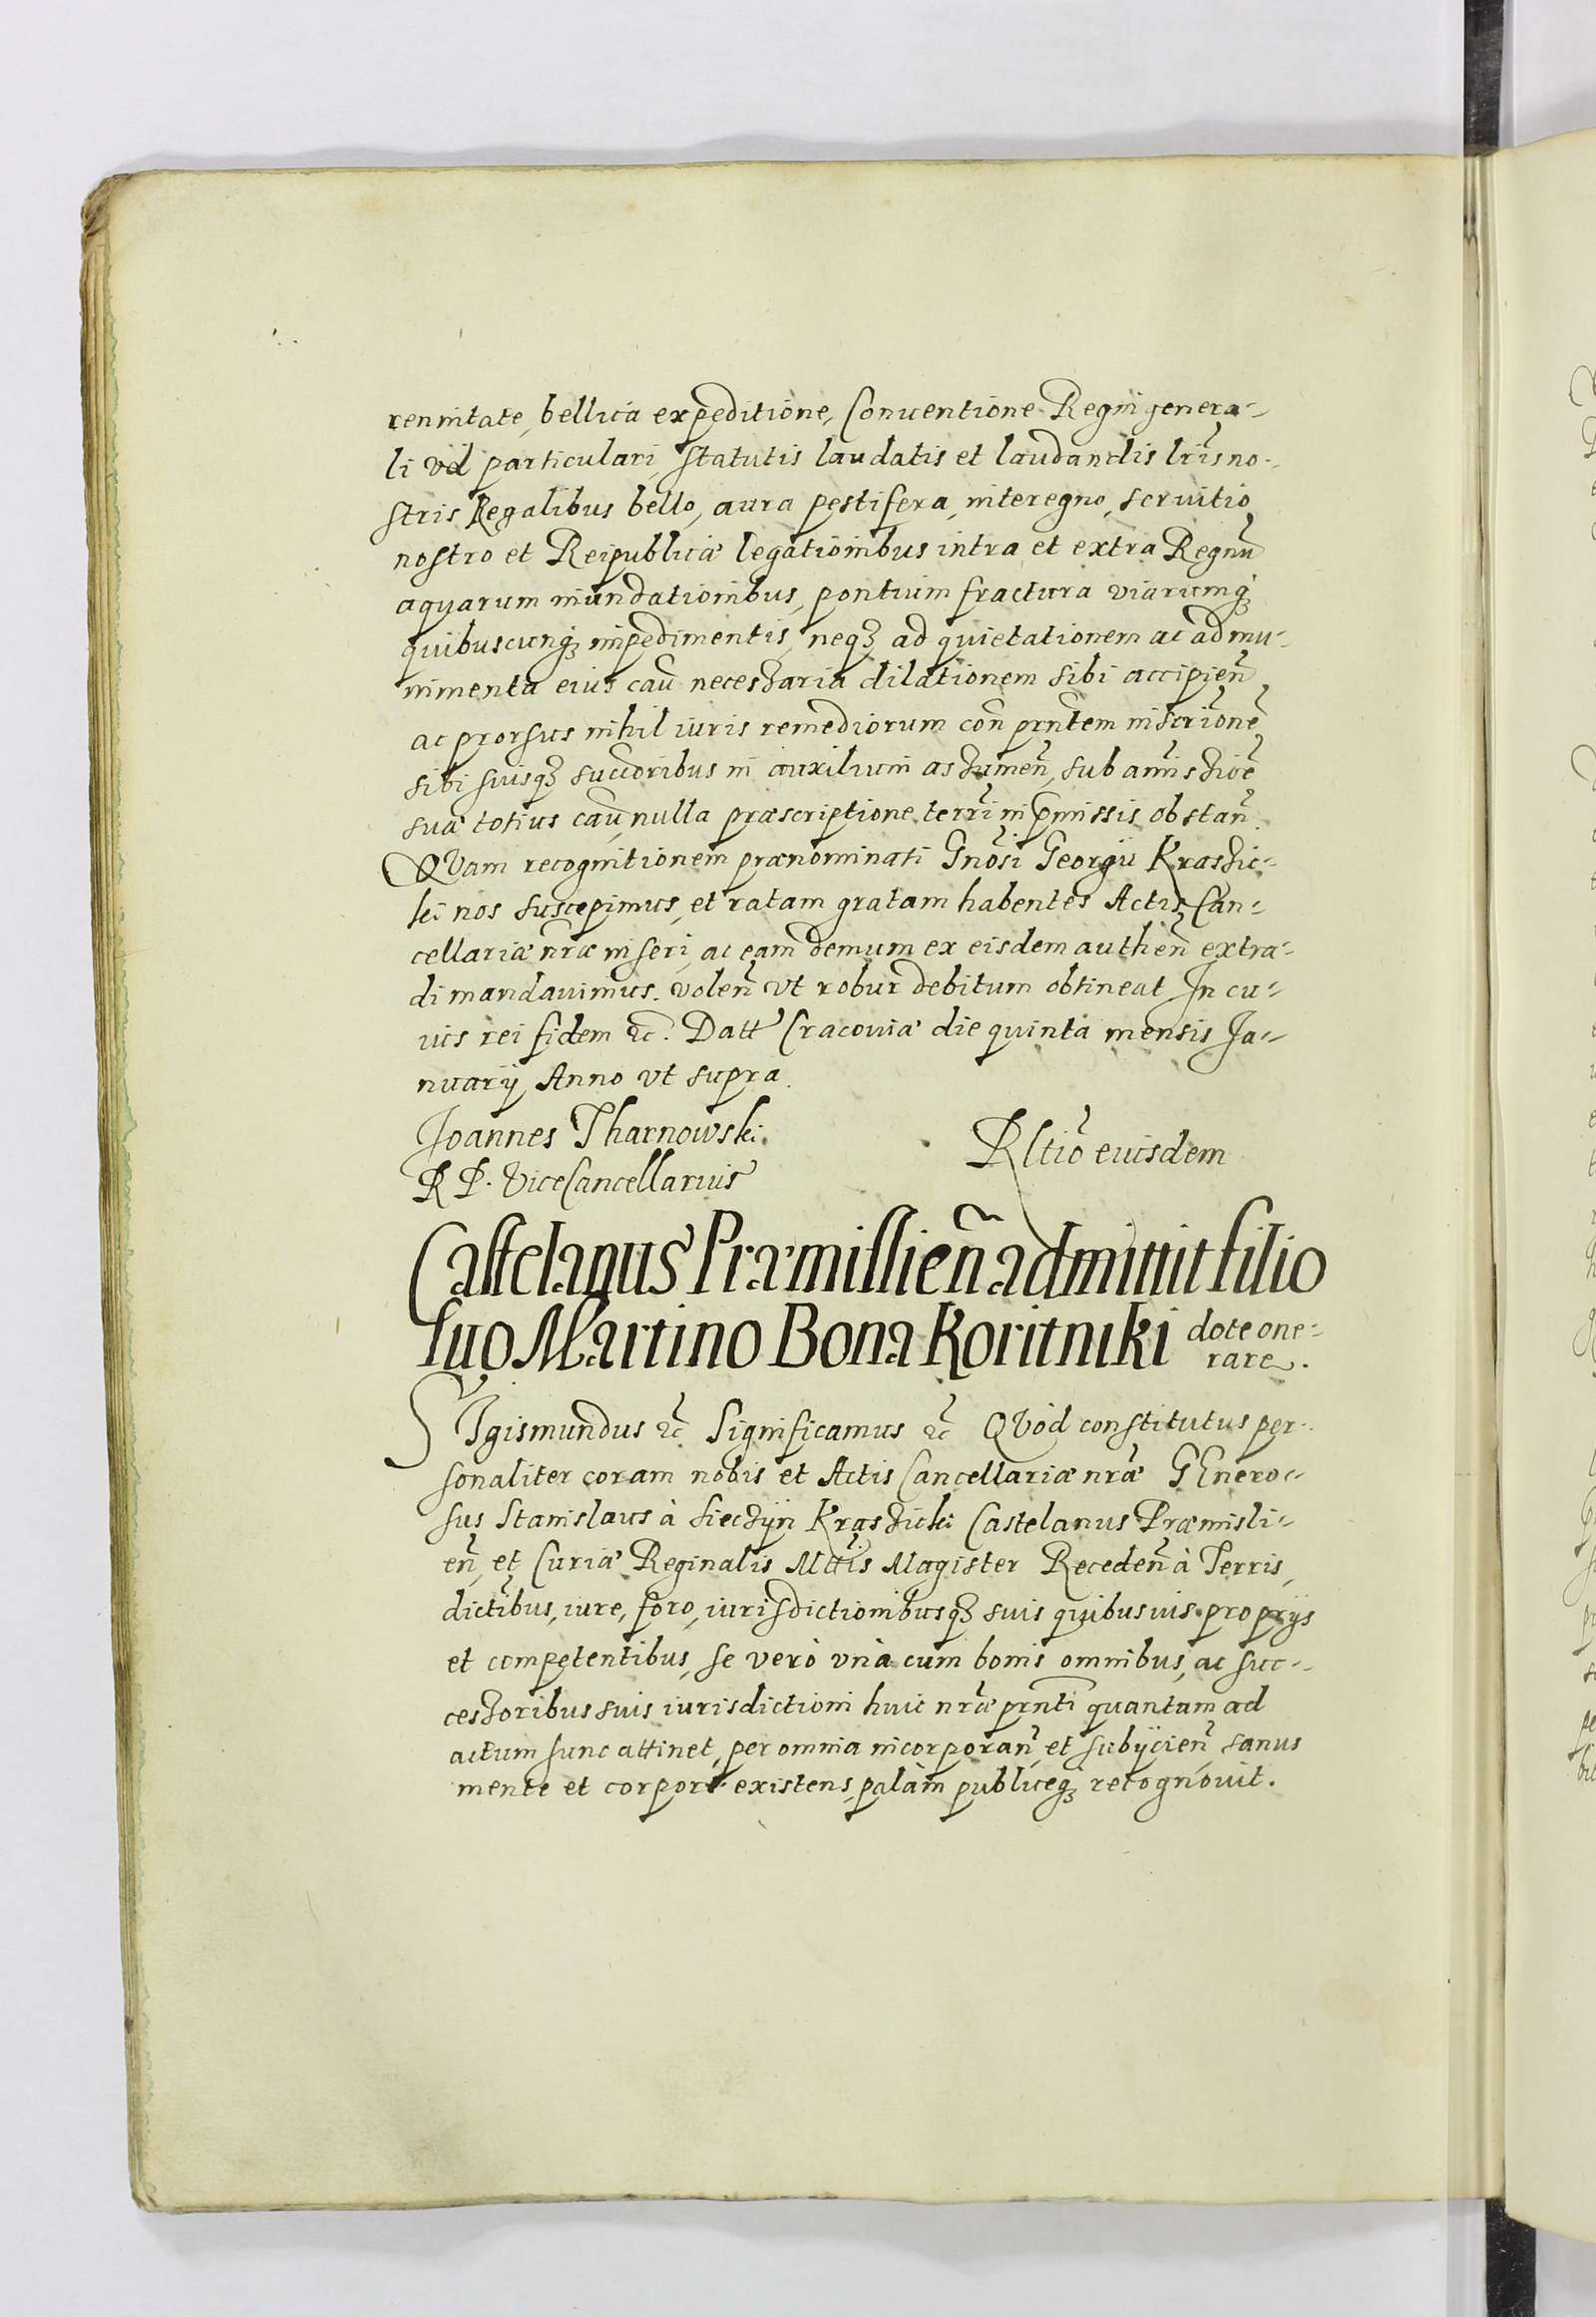 rennitate, bellica expeditione, Conventione Regni genera-
li vel particulari, statutis laudatis et laudandis lris no-
stris Regalibus bello, aura pestifera, interegno, servitio
nostro et Reipublicæ legationibus intra et extra Regnũ
aquarum inundationibus, pontium fractura viarumq;
quibuscunq; impedimentis, neq; ad quietationem ac ad mu-
nimenta eius cau necessaria dilationem sibi accipieñ
ac prorsus nihil iuris remediorum coñ prñtem inscrionẽ
sibi suisq; succoribus in auxilium assumeñ, sub amissioẽ
suæ totius cau, nulla præscriptione terri in pmissis obstañ.
QVam recognitionem prænominati Gnosi Georgii Krassic-
ki nos suscepimus, et ratam gratam habentes Actis Can-
cellariæ nræ inseri, ac eam demum ex eisdem autheñ extra-
di mandavimus. voleñ vt robur debitum obtineat In cu-
ius rei fidem &c. Datt Cracoviæ die quinta mensis Ja-
nuarij Anno vt supra.
Joannes Tharnowski
R P. ViceCancellarius
Rltio eiusdem
Castelanus Præmislieñ admittit filio
suo Martino Bona Koritniki dote one-
rare.
SIgismundus &c Significamus &c QVòd constitutus per-
sonaliter coram nobis et Actis Cancellariæ nræ GEnero-
sus Stanislaus à Sieczijn Krassicki Castelanus Præmisli-
eñ, et Curiæ Reginalis Mttis Magister Recedeñ à Terris,
dictibus, iure, foro, iurisdictionibusq; suis quibusvis proprijs
et competentibus, se verò vnà cum bonis omnibus, ac suc-
cessoribus suis iurisdictioni huic nræ prñti quantum ad
actum hunc attinet, per omnia incorporañ, et subijcieñ sanus
mente et corpore existens, palàm publiceq; recognovit.